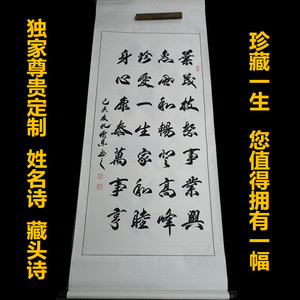 独家尊贵定制 姓名诗 藏头诗
珍藏一生 您值得拥有一幅
葉茂枝繁事業興
惠風和暢登高峰
珍愛一生家和睦
身心康泰萬事亨
己亥